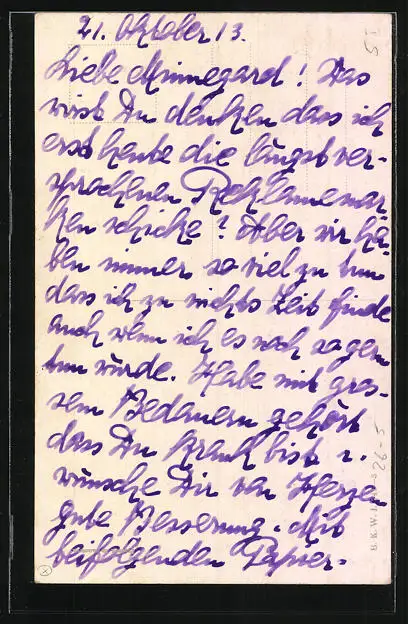 21. Oktober 13.
Liebe Minnegard! Was
wirst Du denken dass ich
erst heute die längst ver-
sprochenen Reklamemar
ken schicke? Aber wir ha-
ben immer so viel zu tun
dass ich zu nichts Zeit finde
auch wenn ich es noch so gern
tun würde. Habe mit gros-
sem Bedauern gehört
dass Du krank bist u.
wünsche Dir von Herzen
gute Besserung. Mit
beifolgenden Papier-
B.K.W.I.
26-5